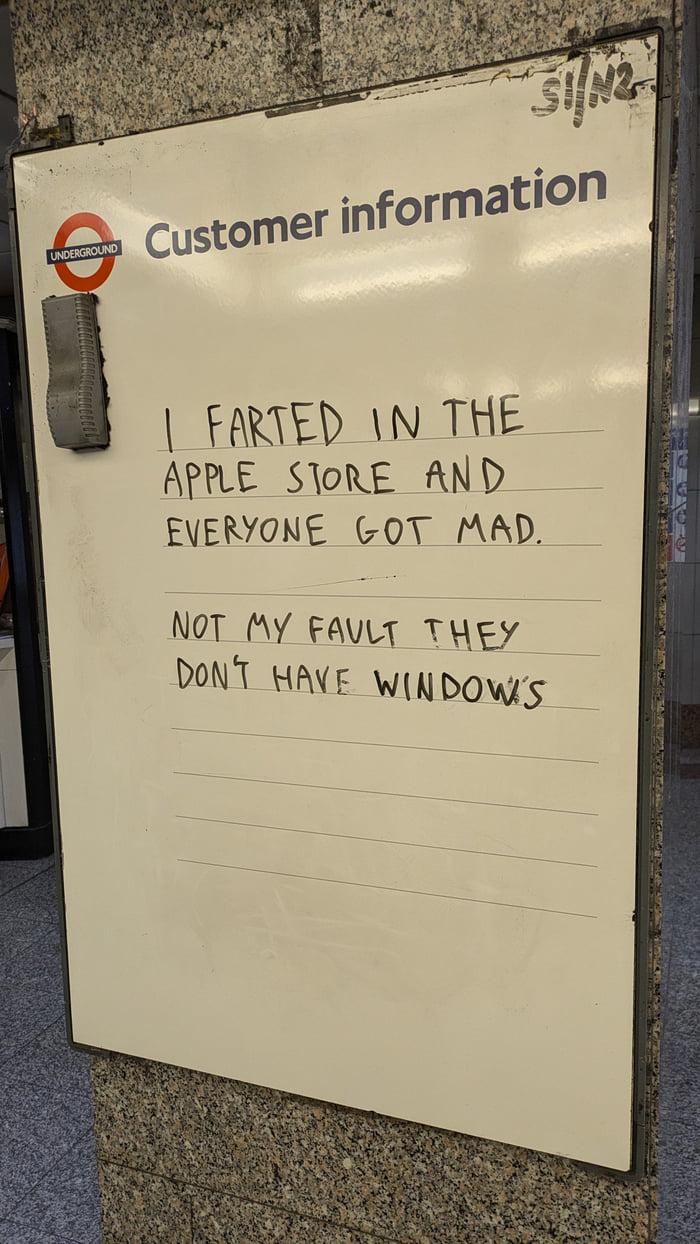 S1/N2
Customer information
UNDERGROUND
I FARTED IN THE
APPLE STORE AND
EVERYONE GOT MAD.
NOT MY FAULT THEY
DON'T HAVE WINDOW'S